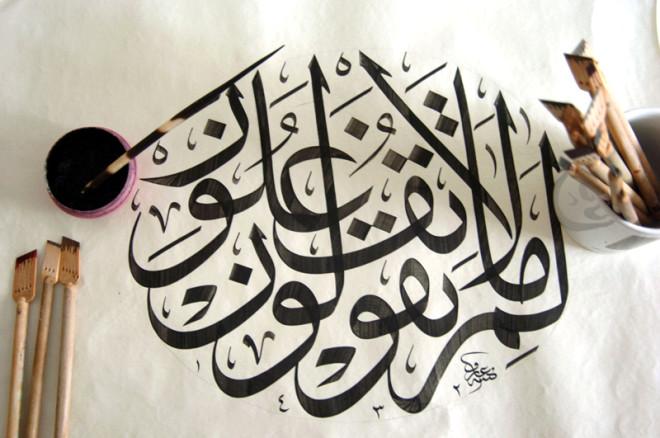 لم تقولون
ما لا تفعلون
١٤٣٢